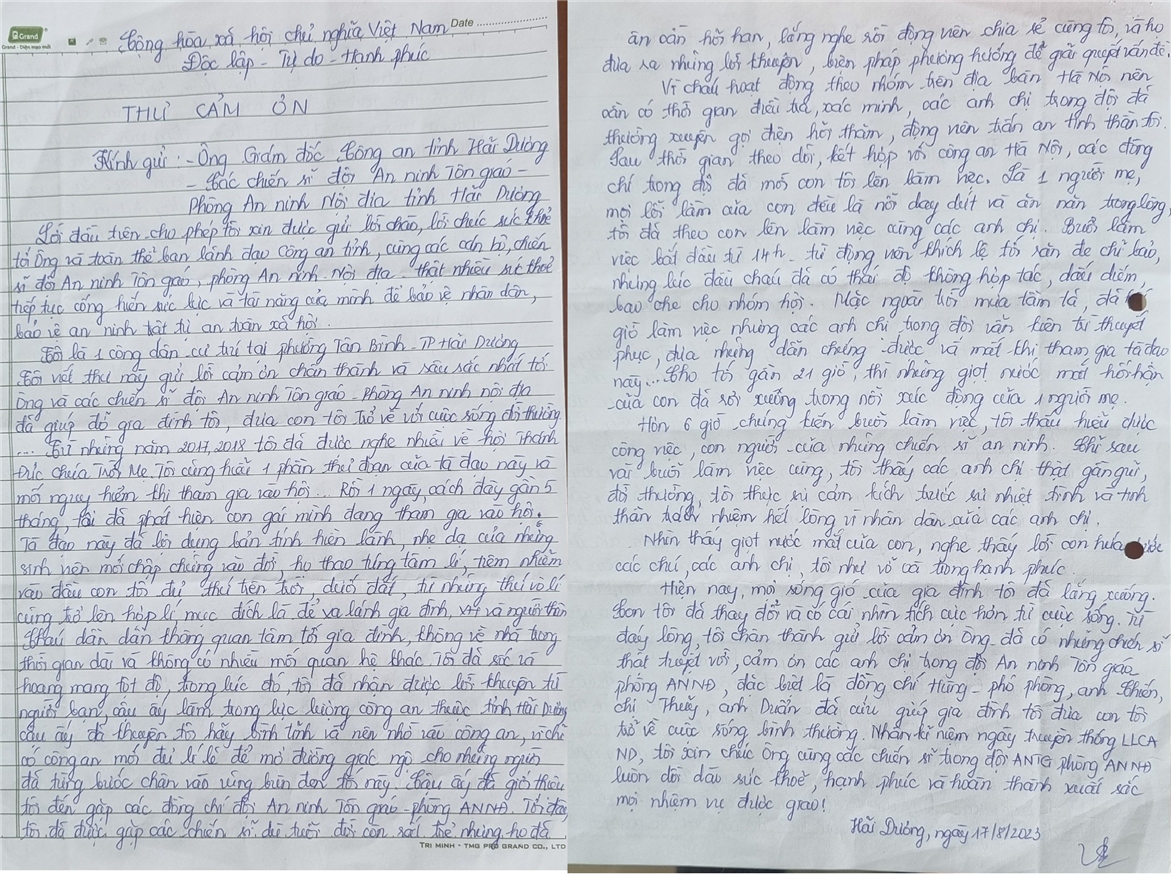 Grand
Grand - Diện mạo mới
Date
Cộng hòa xã hội chủ nghĩa Việt Nam
Độc lập - Tự do - Hạnh phúc
THƯ CẢM ƠN
Kính gửi: - Ông Giám đốc Công an tỉnh Hải Dương
- Các chiến sĩ đội An ninh Tôn giáo -
Phòng An ninh Nội địa tỉnh Hải Dương
Lời đầu tiên cho phép tôi xin được gửi lời chào, lời chúc sức khỏe
tới Ông và toàn thể ban lãnh đạo Công an tỉnh, cùng các cán bộ, chiến
sĩ đội An ninh Tôn giáo, phòng An ninh Nội địa thật nhiều sức khỏe
tiếp tục cống hiến sức lực và tài năng của mình để bảo vệ nhân dân,
bảo vệ an ninh trật tự an toàn xã hội.
Tôi là 1 công dân cư trú tại phường Tân Bình - TP Hải Dương
Tôi viết thư này gửi lời cảm ơn chân thành và sâu sắc nhất tới
Ông và các chiến sĩ đội An ninh Tôn giáo - Phòng An ninh nội địa
đã giúp đỡ gia đình tôi, đưa con tôi trở về với cuộc sống đời thường
... Từ những năm 2017, 2018 tôi đã được nghe nhiều về hội Thánh
Đức Chúa Trời Mẹ. Tôi cũng hiểu 1 phần thủ đoạn của tà đạo này và
mối nguy hiểm khi tham gia vào hội... Rồi 1 ngày, cách đây gần 5
tháng, tôi đã phát hiện con gái mình đang tham gia vào hội.
Tà đạo này đã lợi dụng bản tính hiền lành, nhẹ dạ của những
sinh viên mới chập chững vào đời, họ thao túng tâm lí, tiêm nhiễm
vào đầu con tôi đủ thứ trên trời, dưới đất, từ những thứ vô lí
cũng trở lên hợp lí, mục đích là để xa lánh gia đình, và người thân
Cháu dần dần không quan tâm tới gia đình, không về nhà trong
thời gian dài và không có nhiều mối quan hệ khác. Tôi đã sốc và
hoang mang tột độ, trong lúc đó, tôi đã nhận được lời khuyên từ
người bạn, cậu ấy làm trong lực lượng công an thuộc tỉnh Hải Dương
cậu ấy đã khuyên tôi hãy bình tĩnh và nên nhờ vào công an, vì chỉ
có công an mới đủ lí lẽ để mở đường giác ngộ cho những người
đã từng bước chân vào vũng bùn đen tối này. Cậu ấy đã giới thiệu
tôi đến gặp các đồng chí đội An ninh Tôn giáo - phòng ANNĐ. Tới đây
tôi đã được gặp các chiến sĩ dù tuổi đời còn rất trẻ nhưng họ đã
TRI MINH - TMG PRO GRAND CO., LTD
ân cần hỏi han, lắng nghe rồi động viên chia sẻ cùng tôi, và họ
đưa ra những lời khuyên, biện pháp phương hướng để giải quyết vấn đề.
Vì cháu hoạt động theo nhóm trên địa bàn Hà Nội nên
cần có thời gian điều tra, xác minh, các anh chị trong đội đã
thường xuyên gọi điện hỏi thăm, động viên trấn an tinh thần tôi.
Sau thời gian theo dõi, kết hợp với công an Hà Nội, các đồng
chí trong đội đã mời con tôi lên làm việc. Là 1 người mẹ,
mọi lỗi lầm của con đều là nỗi day dứt và ăn năn trong lòng
tôi đã theo con lên làm việc cùng các anh chị. Buổi làm
việc bắt đầu từ 14h - từ động viên khích lệ tới răn đe chỉ bảo,
nhưng lúc đầu cháu đã có thái độ không hợp tác, dấu diếm
bao che cho nhóm hội. Mặc ngoài trời mưa tầm tã, đã
giờ làm việc nhưng các anh chị trong đội vẫn kiên trì thuyết
phục, đưa những dẫn chứng được và mất khi tham gia tà đạo
này... Cho tới gần 21 giờ, thì những giọt nước mắt hối hận
của con đã rơi xuống trong nỗi xúc động của 1 người mẹ.
Hơn 6 giờ chứng kiến buổi làm việc, tôi thấu hiểu được
công việc, con người của những chiến sĩ an ninh. Chỉ sau
vài buổi làm việc cùng, tôi thấy các anh chị thật gần gũi,
đời thường, tôi thực sự cảm kích trước sự nhiệt tình và tinh
thần trách nhiệm hết lòng vì nhân dân của các anh chị.
Nhìn thấy giọt nước mắt của con, nghe thấy lời con hứa
các chú, các anh chị, tôi như vỡ oà trong hạnh phúc.
Hiện nay, mọi sóng gió của gia đình tôi đã lắng xuống.
Con tôi đã thay đổi và có cái nhìn tích cực hơn từ cuộc sống. Từ
đáy lòng, tôi chân thành gửi lời cảm ơn Ông đã có những chiến sĩ
thật tuyệt vời, cảm ơn các anh chị trong đội An ninh Tôn giáo
phòng ANNĐ, đặc biệt là đồng chí Hùng - phó phòng, anh Chiến,
chị Thuỷ, anh Duẩn đã cứu giúp gia đình tôi đưa con tôi
trở về cuộc sống bình thường. Nhân kỉ niệm ngày truyền thống LLCA
ND, tôi xin chúc Ông cùng các chiến sĩ trong đội ANTG phòng ANNĐ
luôn dồi dào sức khoẻ, hạnh phúc và hoàn thành xuất sắc
mọi nhiệm vụ được giao!
Hải Dương, ngày 17/8/2023